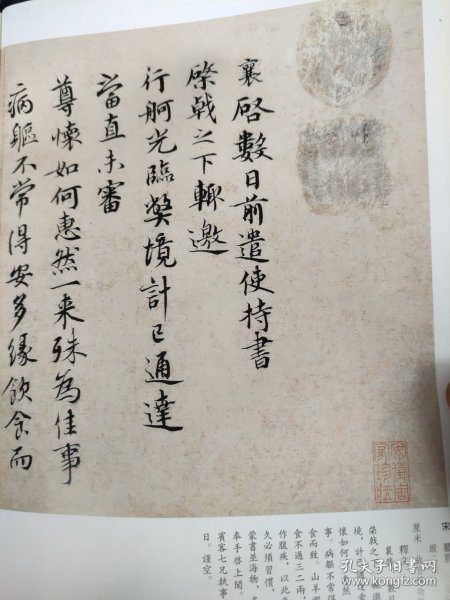 襄啓數日前遣使持書
棨戟之下輒邀
行舸光臨弊境計已通達
當直未審
尊懷如何惠然一來殊為佳事
病軀不常得安多緣飲食而
宋 蔡襄
厘米
釋文
襄啓
棨戟之
境，計已
懷如何
事。病軀不常得
食而致。山羊
食不過三二兩，
作腹疾，以此
久必須習慣，
蒙書並海物，
奉手啓上聞。
賓客七兄執事
日。謹空。
孔夫子旧书网